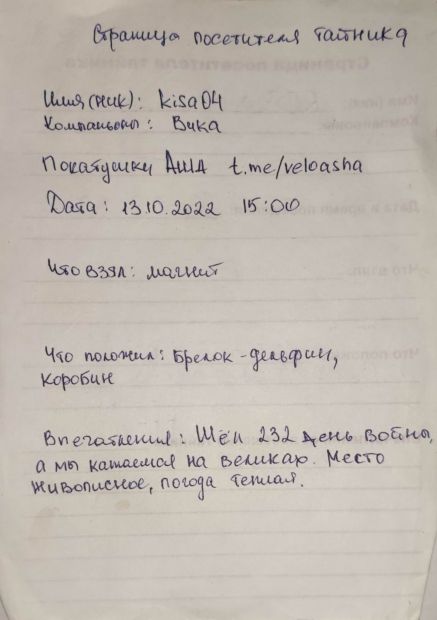 Страница посетителя тайника
Имя (ник): kisa04
Компаньоны: Вика
Покатушки АША t.me/veloasha
Дата: 13.10.2022 15:00
Что взял: магнит
Что положил: Брелок-дельфин,
коробин
Впечатления: Шёл 232 день войны,
а мы катаемся на великах. Место
живописное, погода теплая.